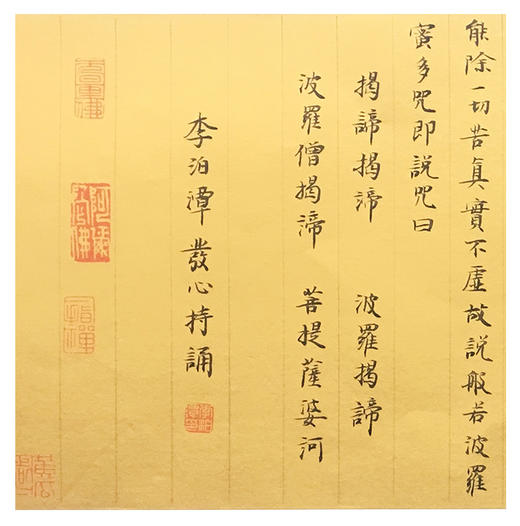 能除一切苦真實不虛故說般若波羅
蜜多咒即說咒曰
揭諦揭諦 波羅揭諦
波羅僧揭諦 菩提薩婆訶
李泊潭發心持誦
阿彌陀佛